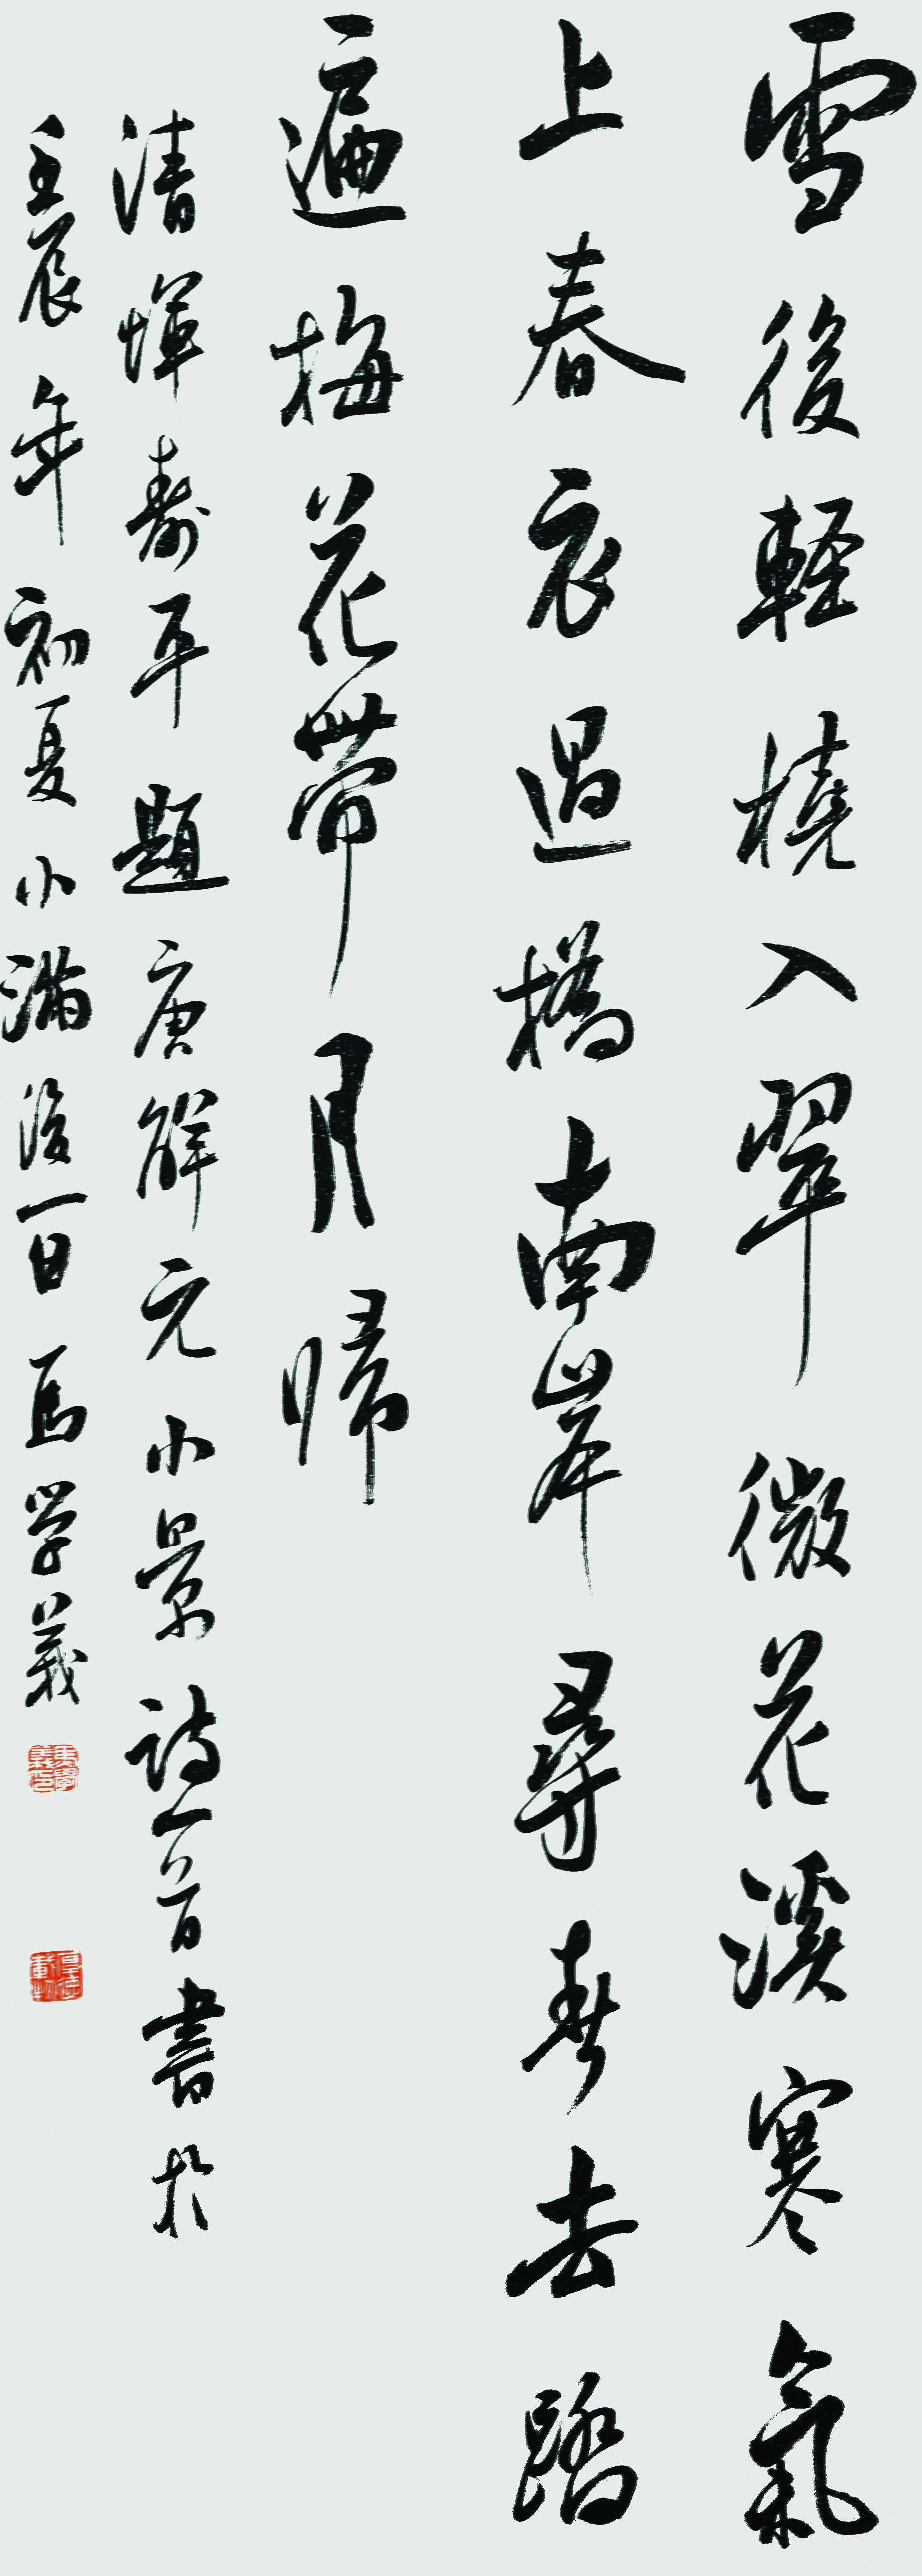 雪後軽橈入翠微花溪寒氣
上春衣過橋南岸尋春去踏
遍梅花帶月歸
清惲寿平題唐解元小景詩一首書於
壬辰年初夏小滿後一日馬学義
馬學義印